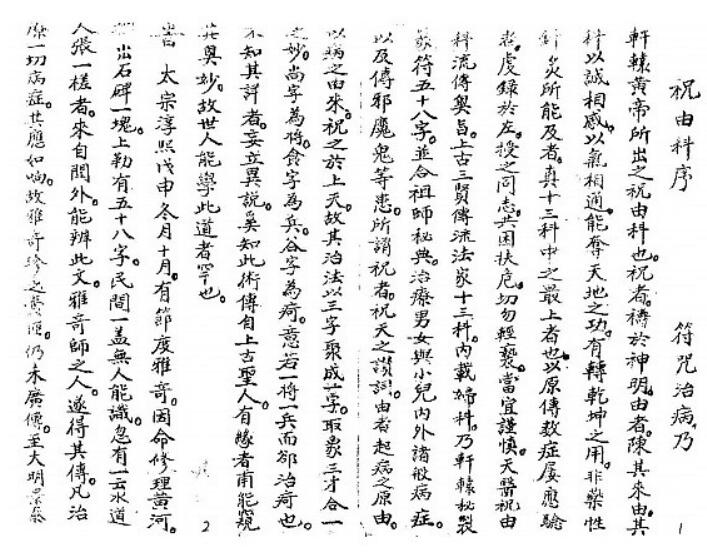 祝由科序 符咒治病乃
軒轅黃帝所出之祝由科也。祝者。禱於神明。由者。陳其來由。其
科以誠相感。以氣相通。能奪天地之功。有轉乾坤之用。非藥性
針灸所能及者。真十三科中之最上者也。以原傳數症屢應驗
者。虔錄於左。授之同志。共困扶危。切勿輕褻。當宜謹慎。天醫祝由
科流傳奧旨。上古三賢傳流法家十三科。內載婦科。乃軒轅秘製
符五十八字。並合祖師秘典。治療男女與小兒內外諸般病症。
以及傳邪魔鬼等患。所謂祝者。祝天之讚詞。由者。起病之原由。
以病之由來。祝之於上天。故其治法以三字聚成一字。取象三才合一
之妙。尚字為將。食字為兵。谷字為疴。意若一將一兵而卻治疴也。
不知其詳者。妄立異說。奚知此術傳自上古聖人。有緣者甫能窺
其奧妙。故世人能學此道者罕也。
昔 太宗淳熙戊申冬月十月。有節度雅奇。因命修理黃河。
出石碑一塊。上勒有五十八字。民間一盖無人能識。忽有一雲水道
人張一槎者。來自閩外。能辨此文。雅奇師之人。遂得其傳。凡治
療一切病症。其應如响。故雅奇珍之。仍未廣傳。至大明景泰
1
2